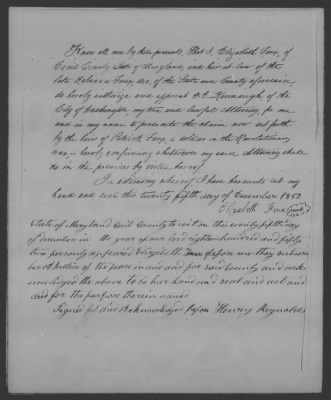 Know all men by these presents, That I, Elizabeth Faux, of
Cecil County State of Maryland, and heir at law of the
late Rebecca Faux dec. of the State and County aforesaid,
do hereby authorize and appoint H. C. Kavanaugh of the
City of Washington my true and lawful Attorney for me
and in my name to prosecute the claim now set forth
by the heirs of Patrick Faux, a soldier in the Revolutionary
war — hereby confirming whatever my said Attorney shall
do in the premises by virtue hereof
In testimony whereof I have hereunto set my
hand and seal this twenty fifth day of December 1852
Elizabeth Faux (seal)
State of Maryland Cecil County to wit on this twenty fifth day
december in the year of our lord eighteen hundred and fifty
two personly appeared Elizabeth Faux before me the subscri
ber A Justice of the peace in and for said County and ack
nowledged the above to be her hand and seal and act and
and for the purpose therein named
Signed and Acknowledged before Henry Reynolds